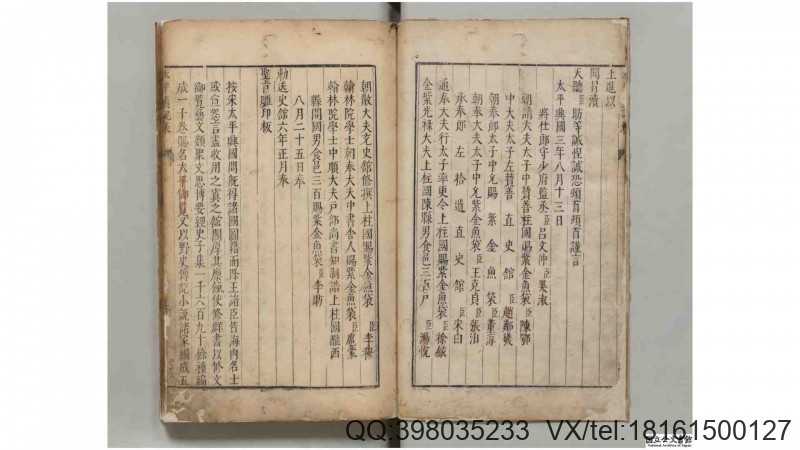 上進以
聞冒瀆
天聽臣昉等誠惶誠恐頓首頓首謹言
太平興國三年八月十三日
將仕郎守少府監丞臣呂文仲臣吳淑
朝請大夫太子中贊善柱國賜紫金魚袋臣陳鄂
中大夫太子左贊善直史館臣趙鄰幾
朝奉郎太子中允賜紫金魚袋臣董淳
朝奉大夫太子中允紫金魚袋臣王克貞臣張洎
承奉郎左拾遺直史館臣宋白
通奉大夫行太子率更令上柱國賜紫金魚袋臣徐鉉
金紫光祿大夫上柱國陳縣男食邑三百戶臣湯悅
朝散大夫充史館修撰上柱國賜紫金魚袋臣李穆
翰林院學士朝奉大夫中書舍人賜紫金魚袋臣扈蒙
翰林院學士中順大夫戶部尚書知制誥上柱國隴西
縣開國男食邑三百賜紫金魚袋臣李昉
八月二十五日奉
勅送史館六年正月奉
聖旨雕印板
按宋太平興國間既得諸國圖籍而降王諸臣皆海內名士
或宣怨言盡收用之寘之館閣厚其廩餼使修群書以修文
御覽藝文類聚文思博要經史子集一千六百九十餘種編
成一千卷賜名太平御覽又以野史傳記小說諸家編成五
QQ:398035233 VX/tel:18161500127
国立公文書館
National Archives of Japan